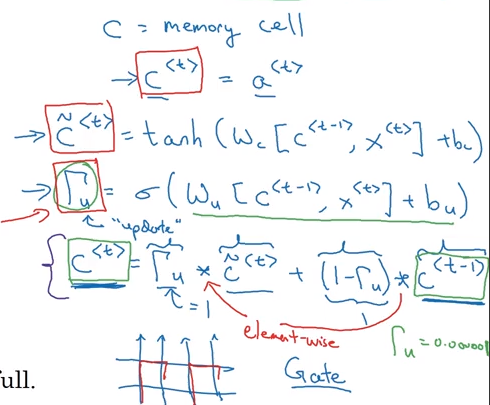 C = memory cell
→ C^{<t>} = a^{<t>}
→ C̃^{<t>} = tanh (W_c [C^{<t-1>}, x^{<t>}] + b_c)
→ Γ_u = σ (W_u [C^{<t-1>}, x^{<t>}] + b_u)
"update"
C^{<t>} = Γ_u * C̃^{<t>} + (1-Γ_u) * C^{<t-1>}
= 1
1
element-wise
Γ_u = 0.000001
full.
Gate